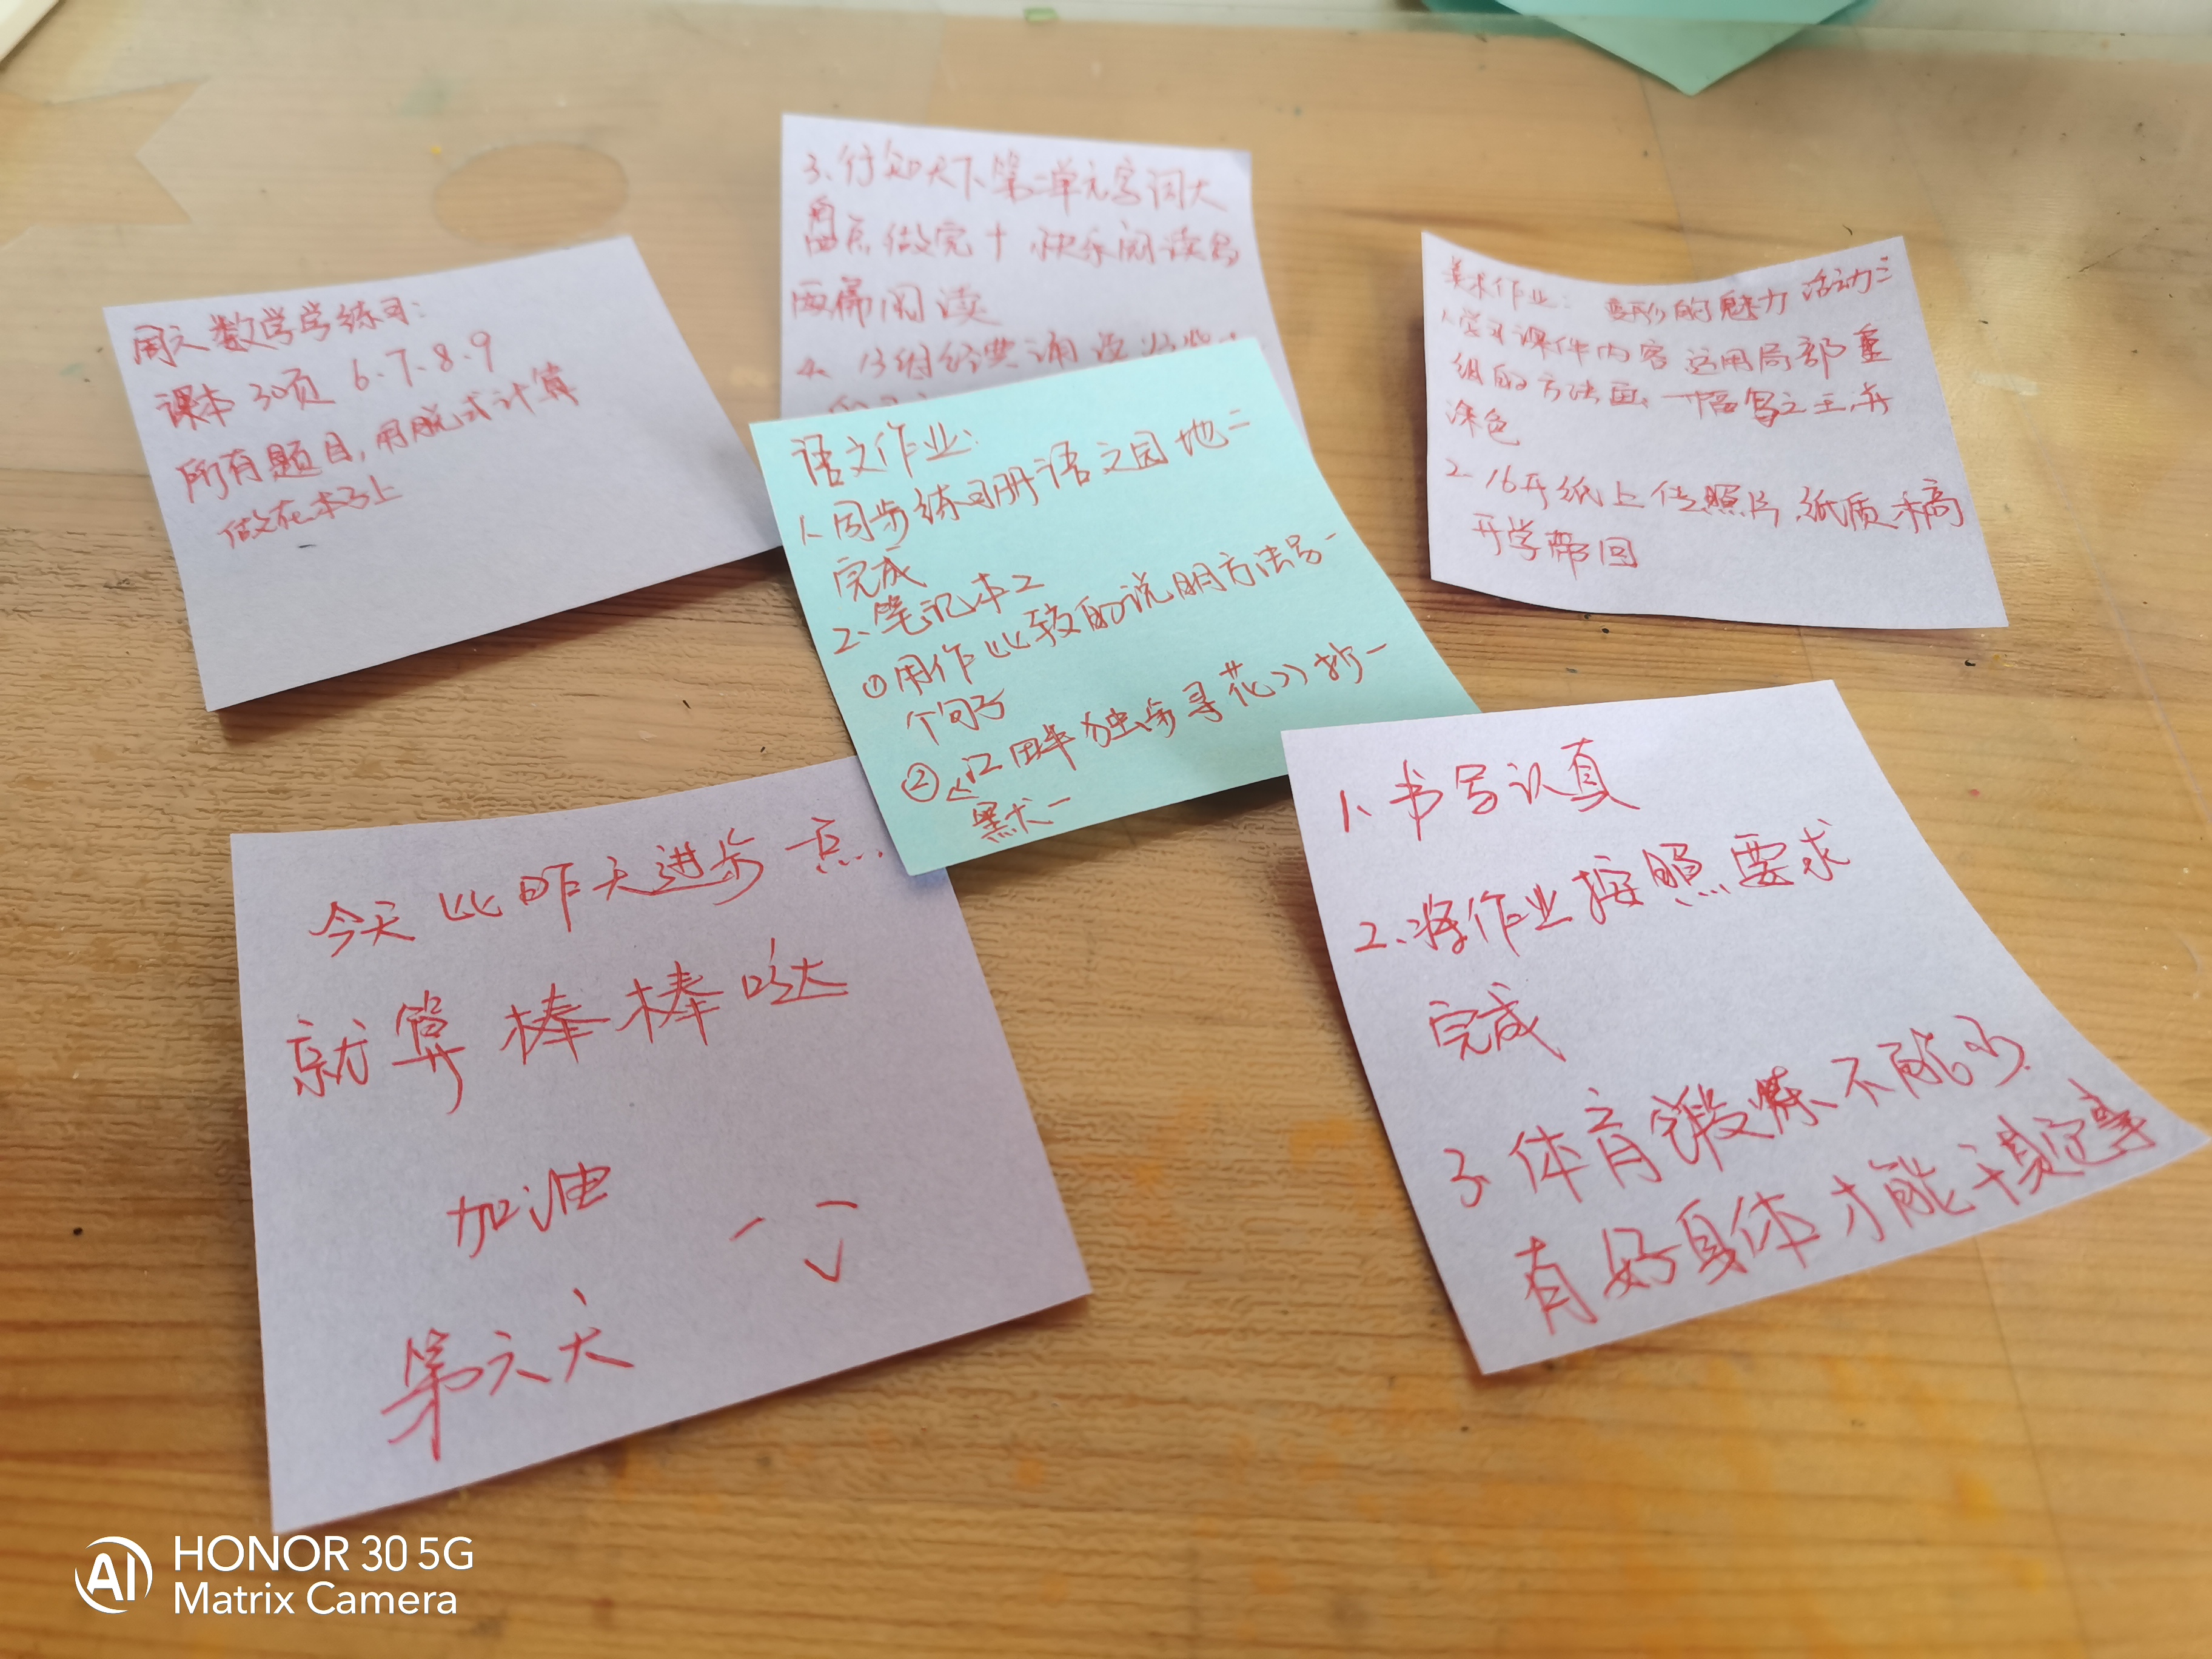 周六数学学练习:
课本 30页 6.7.8.9
所有题目,用脱式计算
做在本子上
3、行知天下第二单元字词大
盘点做完+快乐阅读吧
两篇阅读
4、经典诵读
美术作业: 变形的魅力 活动三
1、学习课件内容 运用局部重
组的方法画一幅 之王,并
涂色
2、16开纸上传照片,纸质稿
开学带回
语文作业:
1、同步练习册语文园地二
完成
2、笔记本2
①用作比较的说明方法写一
个句子
②《江畔独步寻花》抄一
默一
今天比昨天进步一点.
就算棒棒哒
加油
第六天
1、书写认真
2、将作业按照要求
完成
3、体育锻炼不能少
有好身体才能干其它事
HONOR 30 5G
AI Matrix Camera